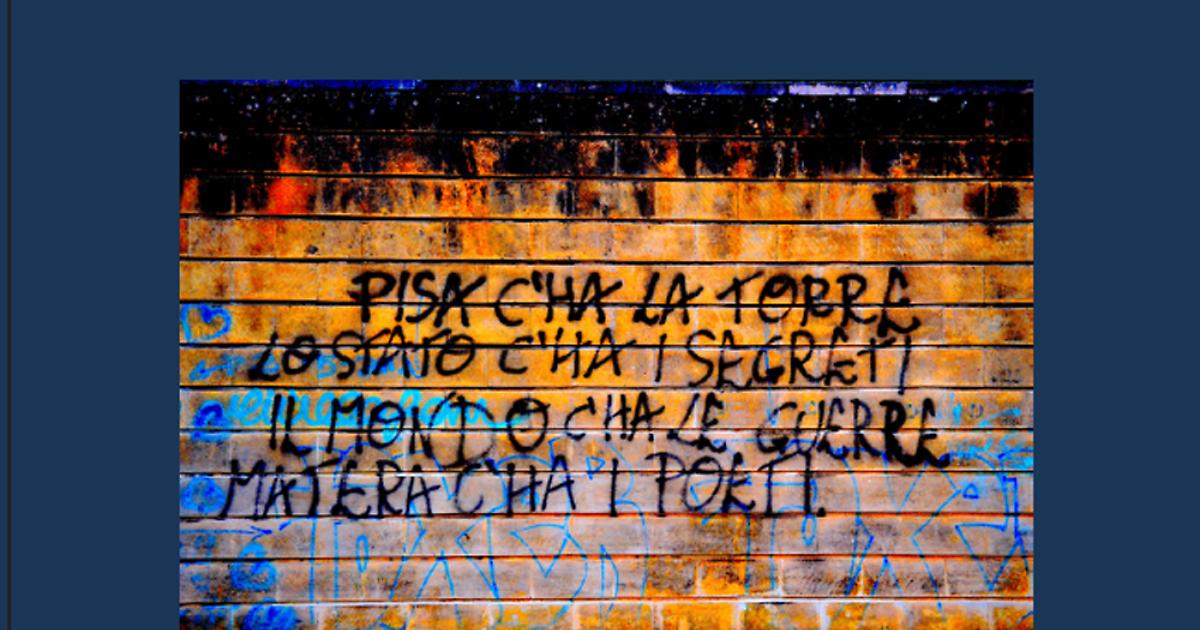 PISA C'HA LA TORRE
LO STATO C'HA I SEGRETI
IL MONDO C'HA LE GUERRE
MATERA C'HA I POETI.